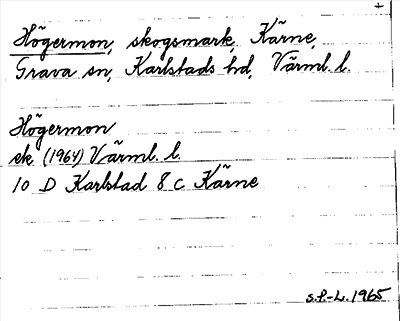 +
Högermon, skogsmark, Kärne,
Grava sn, Karlstads hd, Värml. l.
Högermon
ek (1964) Värml. l.
10 D Karlstad 8 c Kärne
S.P.-L. 1965